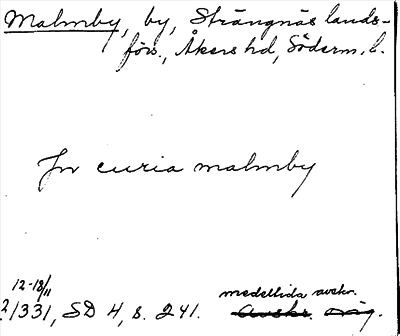 Malmby, by, Strängnäs lands-
förs., Åkers hd, Söderm. l.
Jn curia malmby
12-18/11
1331, SD 4, s. 241. medeltida avskr.
Avskr. orig.